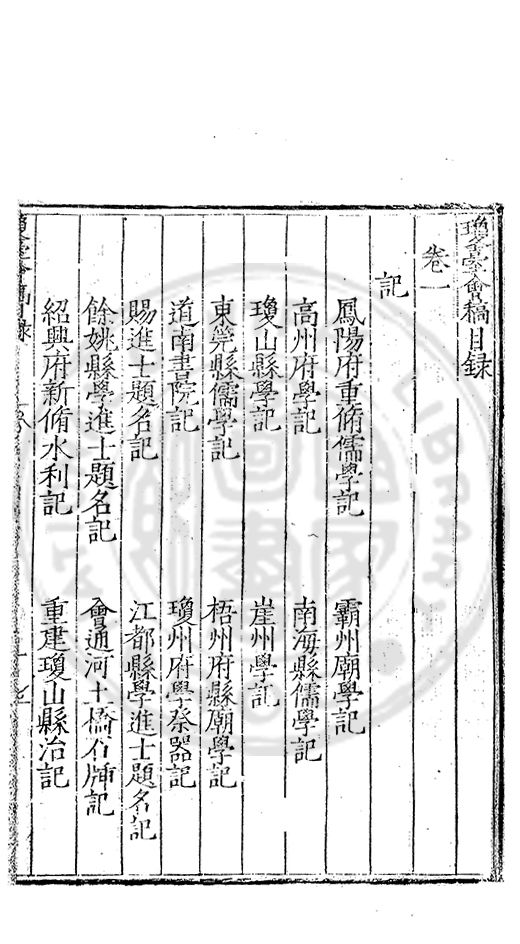 瓊臺會稿目錄
卷一
記
鳳陽府重脩儒學記 霸州廟學記
高州府學記 南海縣儒學記
瓊山縣學記 崖州學記
東莞縣儒學記 梧州府縣廟學記
道南書院記 瓊州府學祭器記
賜進士題名記 江都縣學進士題名記
餘姚縣學進士題名記 會通河土橋石牌記
紹興府新脩水利記 重建瓊山縣治記